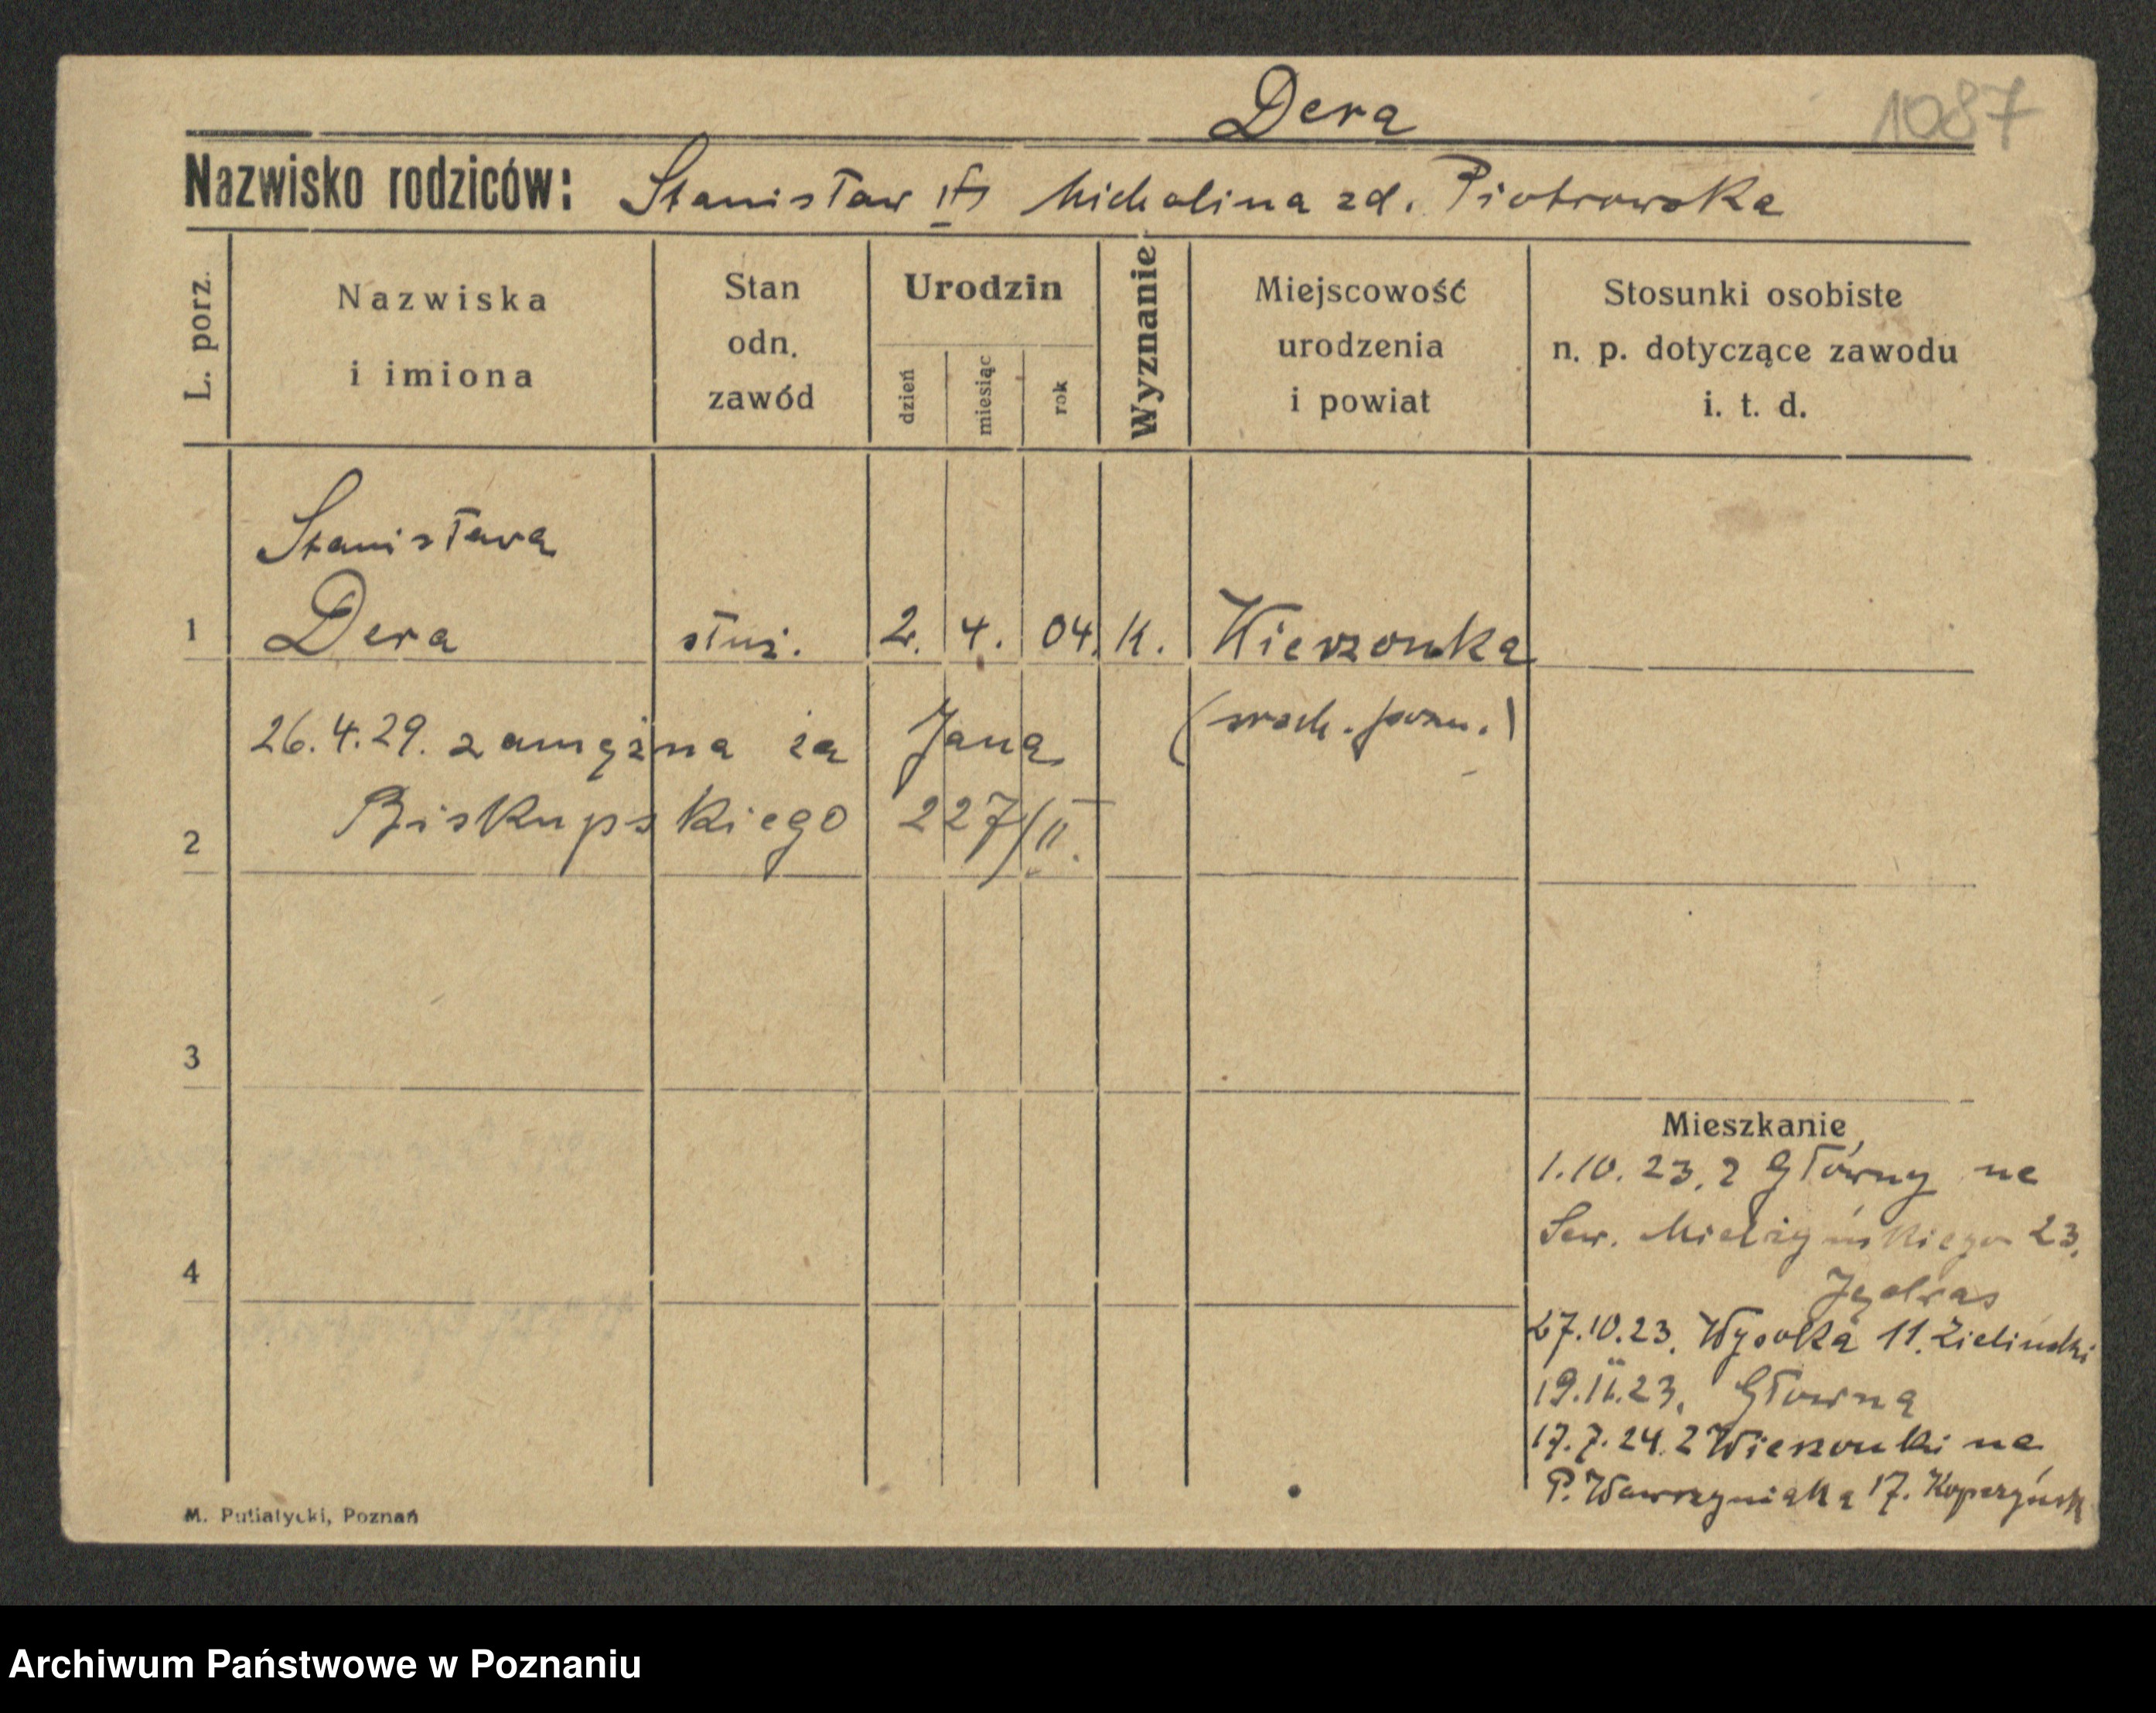 Dera
1087
Nazwisko rodziców: Stanisław Michalina zd. Piotrowska
L. porz.
Nazwiska
i imiona
Stan
odn.
zawód
Urodzin
dzień
miesiąc
rok
Wyznanie
Miejscowość
urodzenia
i powiat
Stosunki osobiste
n. p. dotyczące zawodu
i. t. d.
Stanisława
1 Dera służ. 2. 4. 04. K. Wierzonka
(wsch. pozn.)
26.4.29. zamężna za Jana
2 Biskupskiego 227/II.
3
Mieszkanie
1.10.23. z Główny na
Sew. Mielżyńskiego 23.
4
Jędras
27.10.23. Wysoka 11. Zieliński
19.11.23. Główna
17.7.24. z Wierzonki na
P. Wawrzyniaka 17.
M. Putiatycki, Poznań
Archiwum Państwowe w Poznaniu